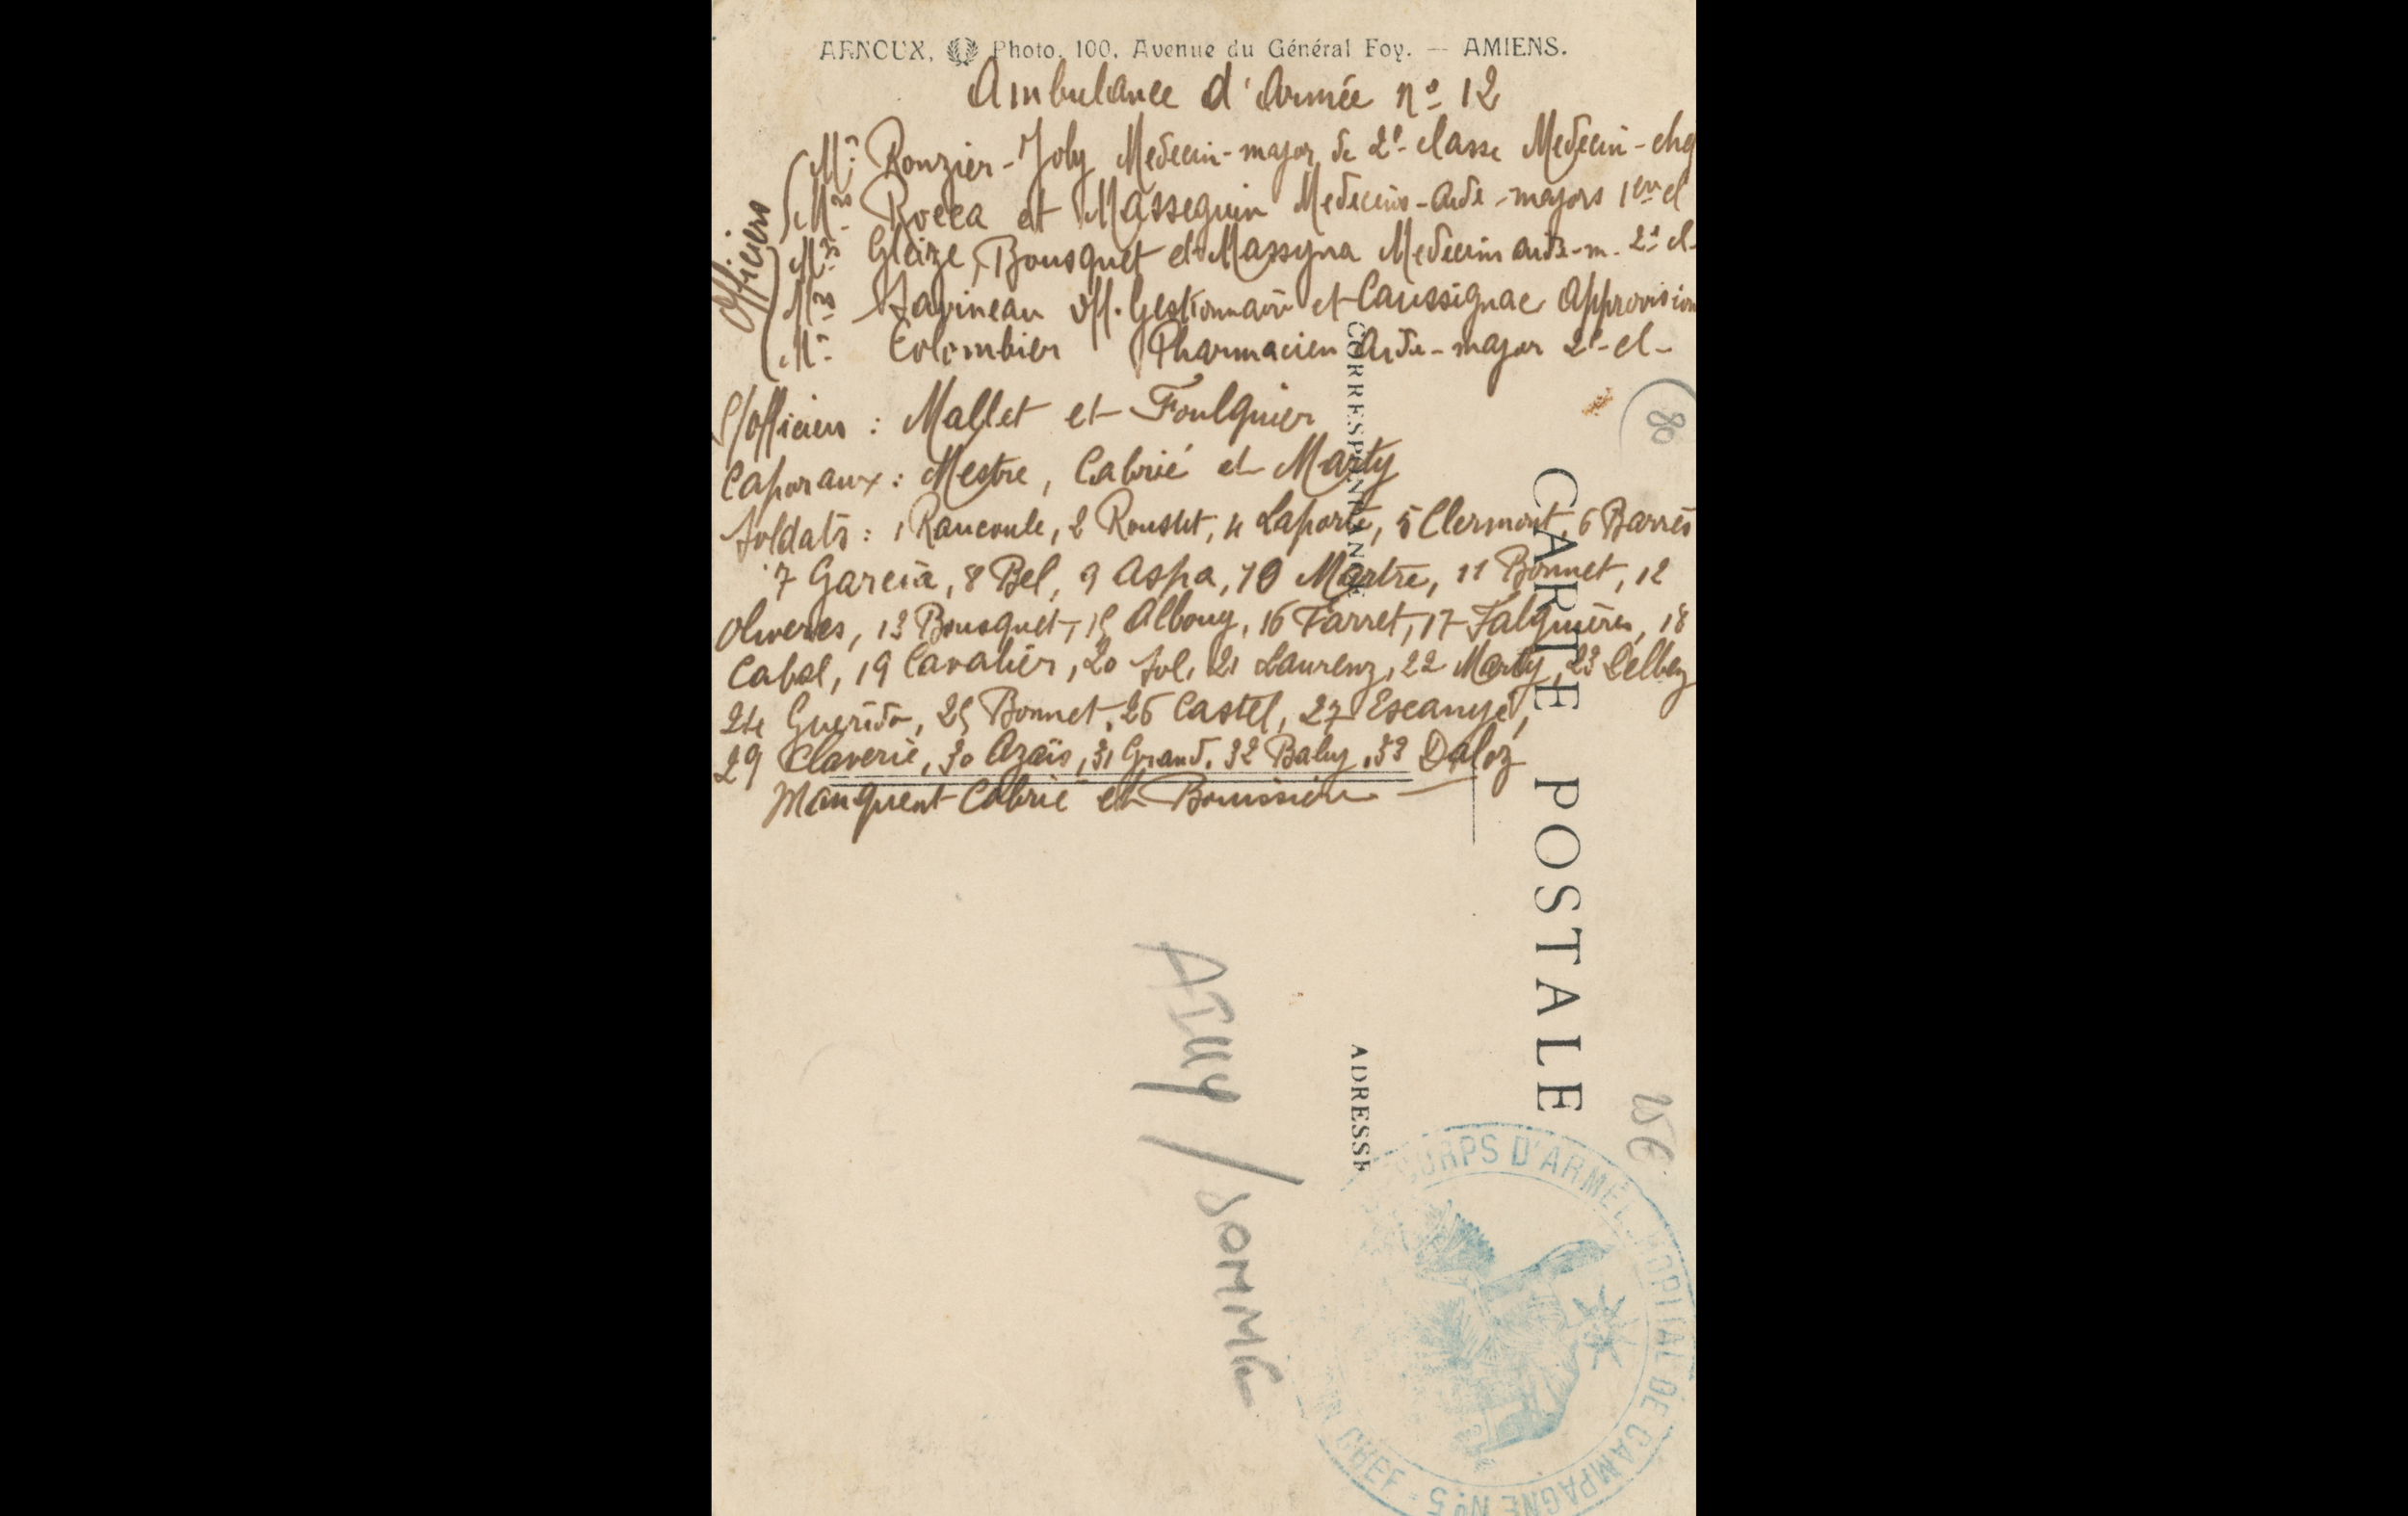 ARNOUX, Photo, 100, Avenue du Général Foy. — AMIENS.
Ambulance d'Armée nº 12
Officiers
Mr. Rouzier-Joly Medecin-major de 2e classe Medecin-che
Mrs. Rocca et Masseguin Medecins-aide-majors 1ere cl
Mrs Gleize, Bousquet et Massyna Medecins aide-m. 2e cl-
Mrs Savineau off. Gestionnaire et Caussignac Approvision
Mr. Colombier Pharmacien Aide-major 2e-cl-
S/officiers : Mallet et Foulquier
Caporaux : Mestre, Cabrié et Marty
Soldats : 1 Rancoule, 2 Roustit, 4 Laporte, 5 Clermont, 6 Barrès
7 Garcia, 8 Bel, 9 Aspa, 10 Martre, 11 Bonnet, 12
Oliveres, 13 Bousquet, 15 Albouy, 16 Farret, 17 Falguières, 18
Cabal, 19 Cavalier, 20 Sol, 21 Laurens, 22 Marty, 23 Delbey
24 Guerido, 25 Bonnet, 26 Castel, 27 Escanyé,
29 Claverie, 30 Azaïs, 31 Grand, 32 Baluy, 33 Daloz
Manquent Cabrié et
80
CORRESPONDANCE
CARTE POSTALE
ADRESSE
AILLY / SOMME
25€
CORPS D'ARMÉE HOPITAL DE CAMPAGNE Nº 5 - CHEF